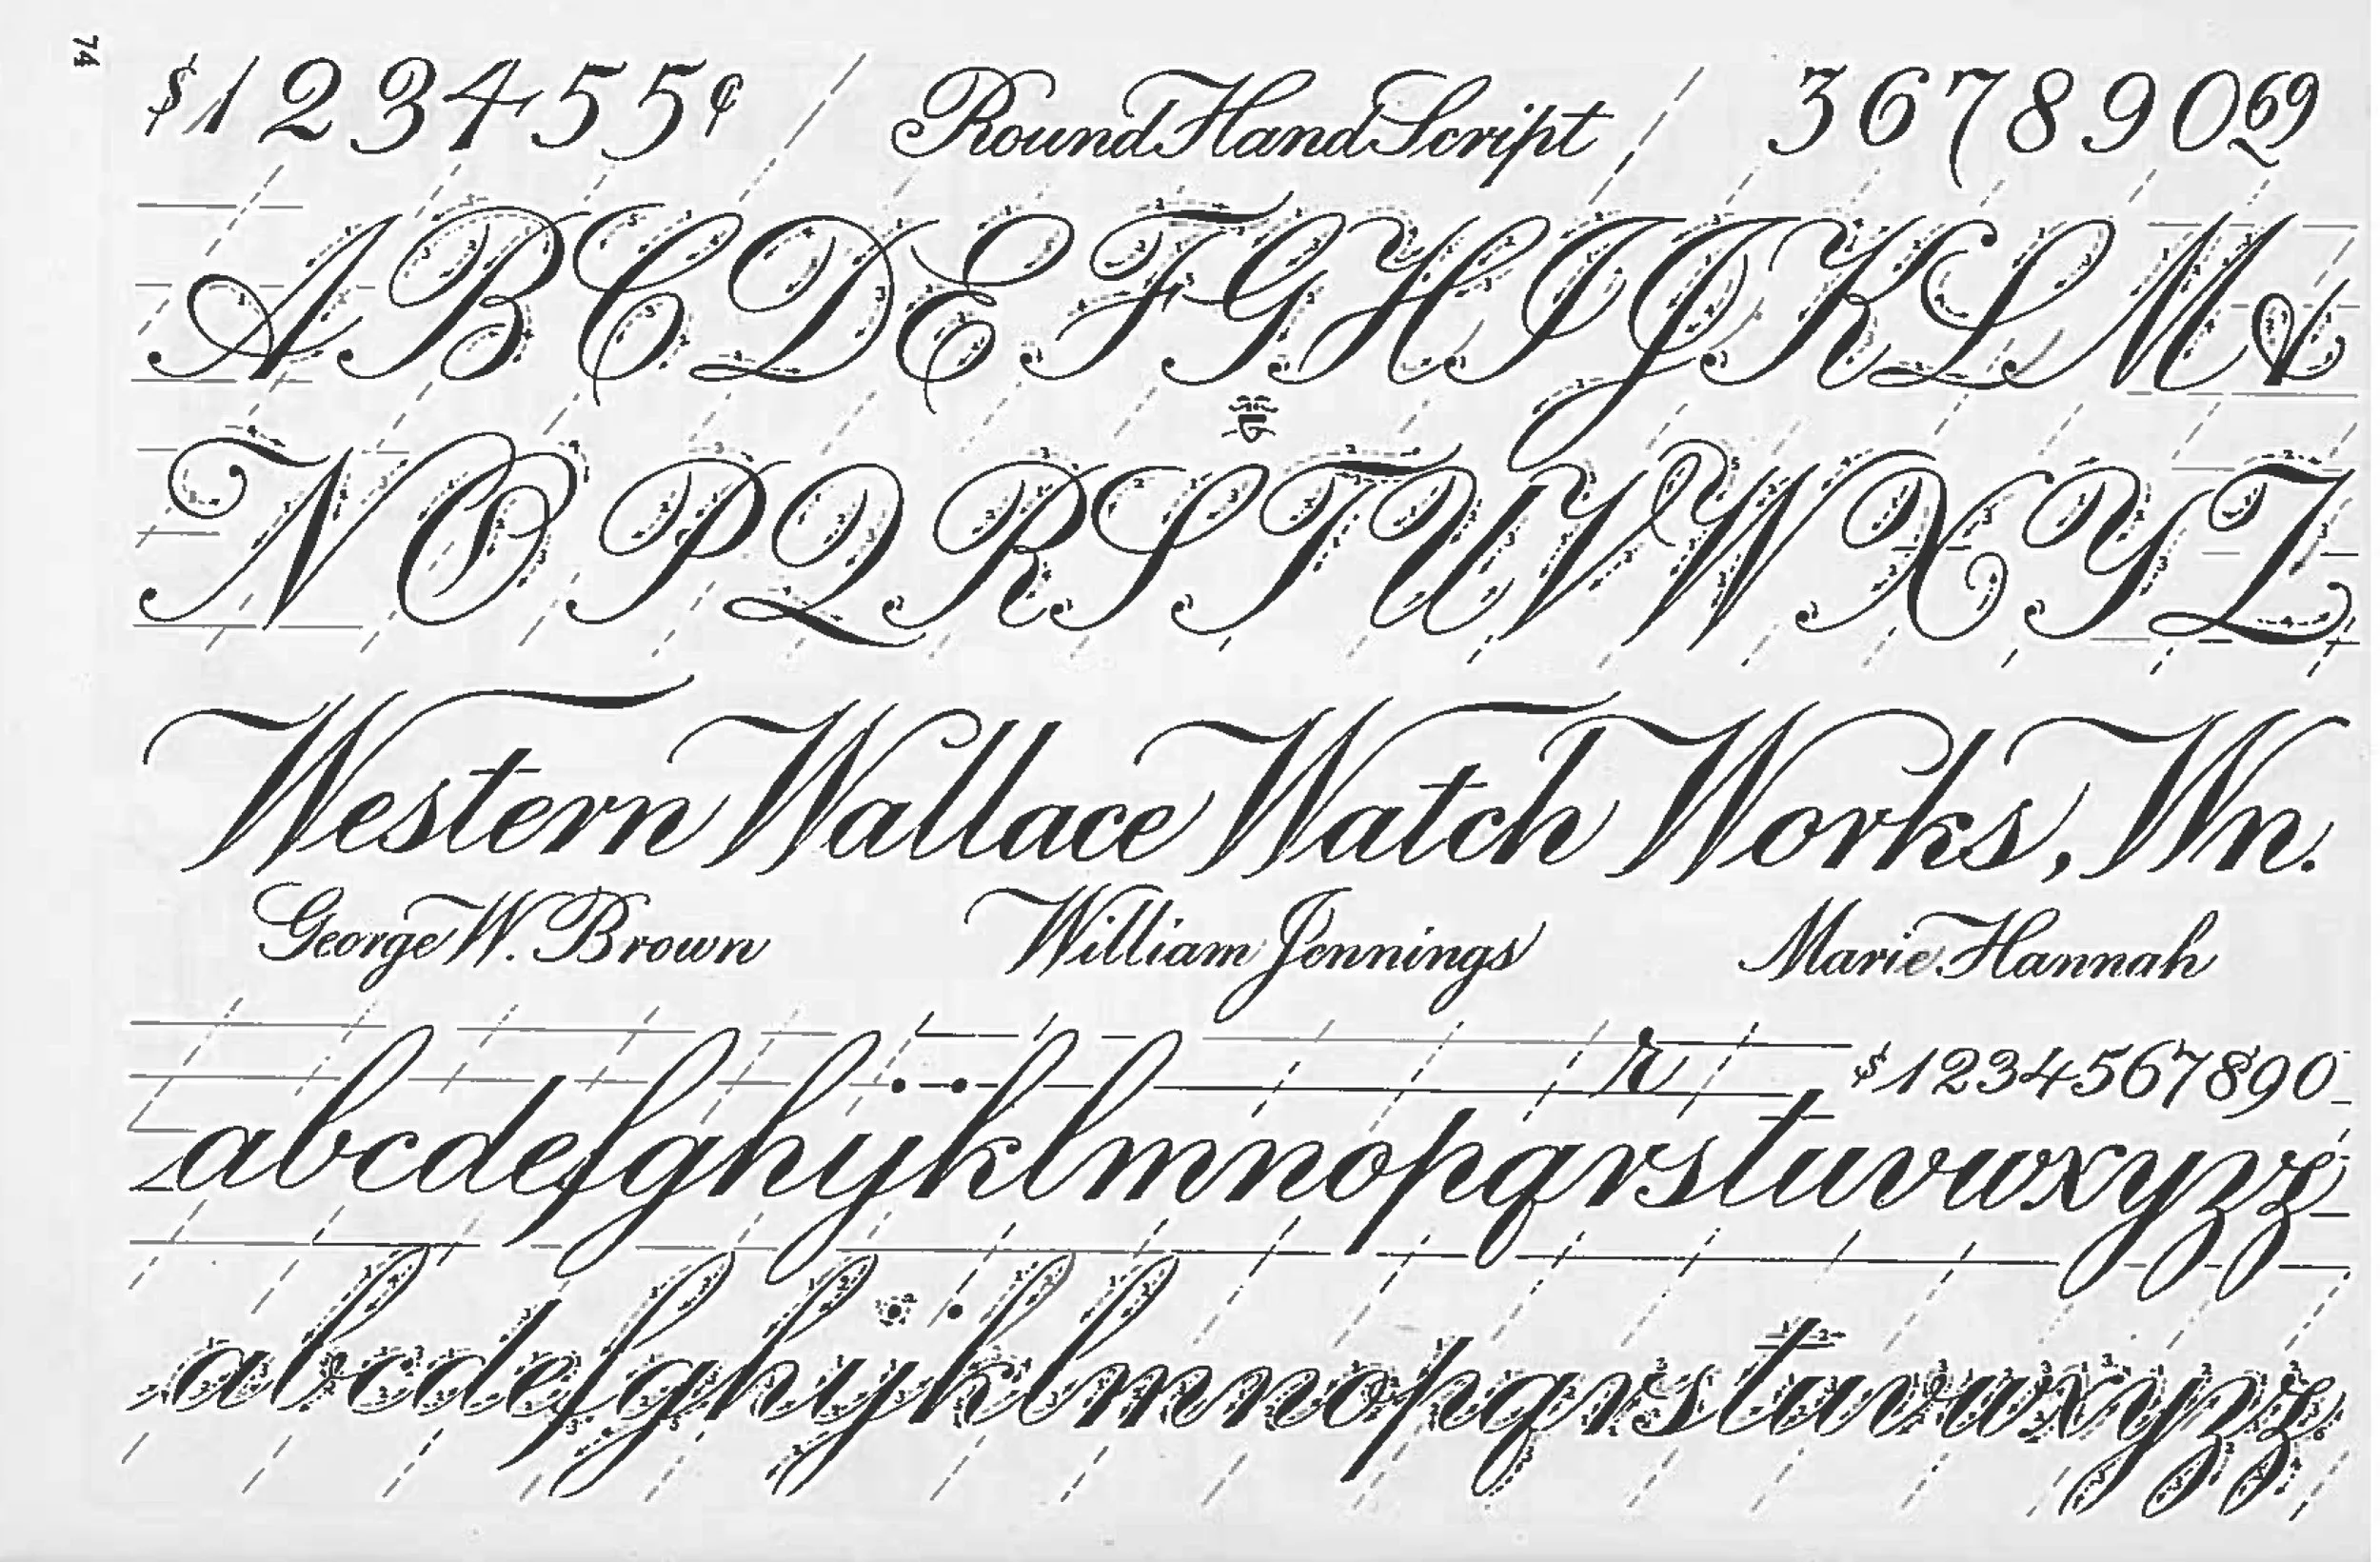 74
$123455¢ Round Hand Script 36789069
ABCDEFGHIJKLM&
NOPQRSTUVWXYZ
Western Wallace Watch Works, Wn.
George W. Brown William Jennings Marie Hannah
r $1234567890
abcdefghijklmnopqrstuvwxyzz
abcdefghijklmnopqrstuvwxyzz